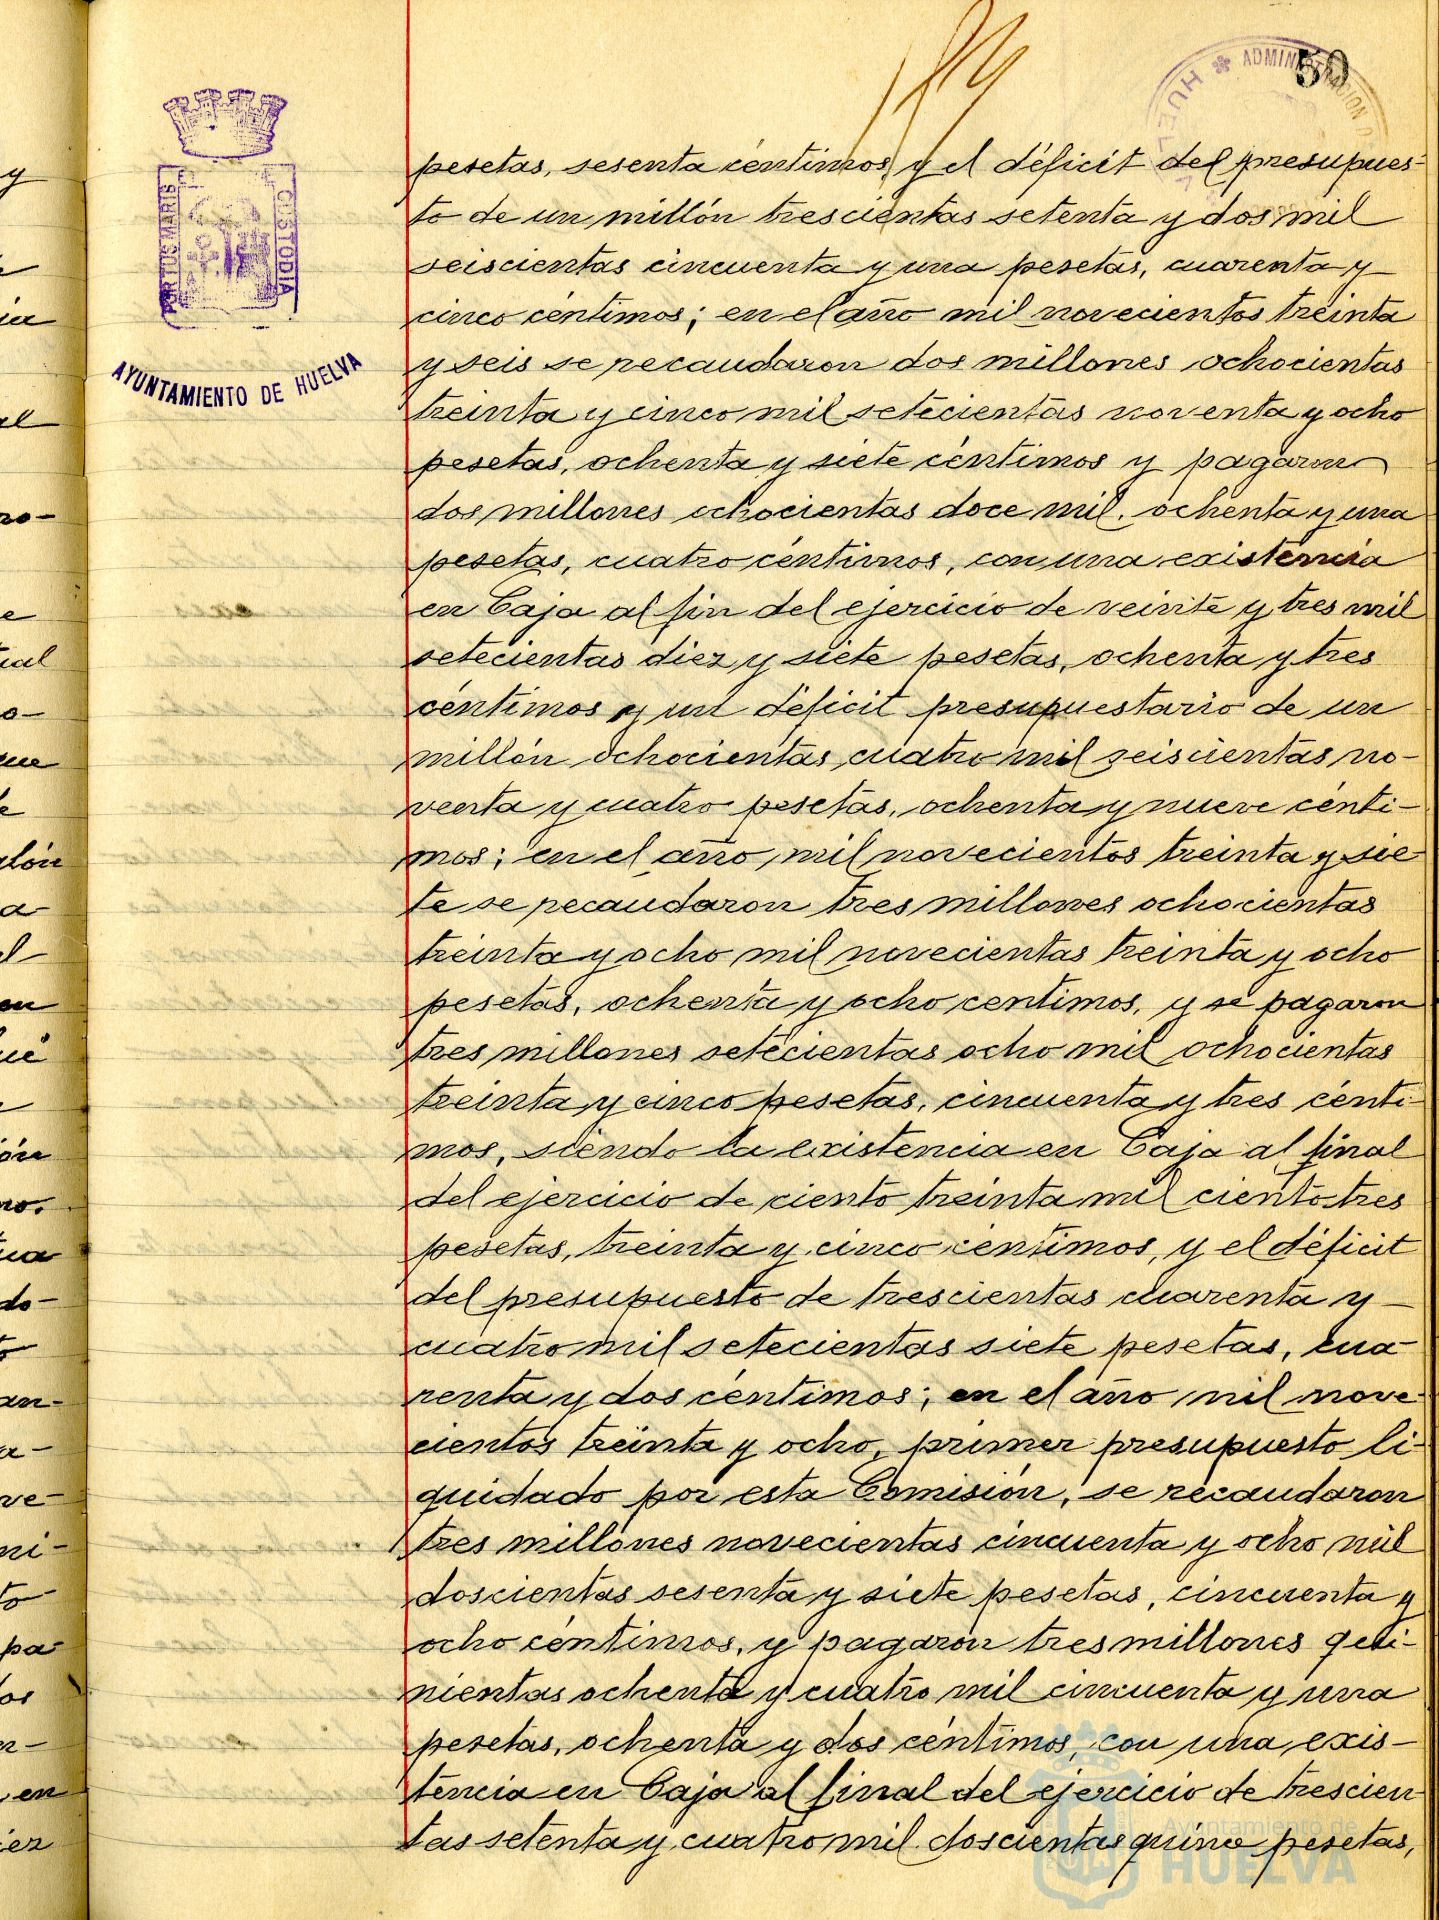 50
ADMINISTRACION D
HUELVA
PORTUS MARIS
CUSTODIA
AYUNTAMIENTO DE HUELVA
pesetas, sesenta céntimos y el déficit del presupues-
to de un millón trescientas setenta y dos mil
seiscientas cincuenta y una pesetas, cuarenta y
cinco céntimos; en el año mil novecientos treinta
y seis se recaudaron dos millones ochocientas
treinta y cinco mil setecientas noventa y ocho
pesetas, ochenta y siete céntimos y pagaron
dos millones ochocientas doce mil, ochenta y una
pesetas, cuatro céntimos, con una existencia
en Caja al fin del ejercicio de veinte y tres mil
setecientas diez y siete pesetas, ochenta y tres
céntimos y un déficit presupuestario de un
millón ochocientas cuatro mil seiscientas no-
venta y cuatro pesetas, ochenta y nueve cénti-
mos; en el año mil novecientos treinta y sie-
te se recaudaron tres millones ochocientas
treinta y ocho mil novecientas treinta y ocho
pesetas, ochenta y ocho centimos, y se pagaron
tres millones setecientas ocho mil ochocientas
treinta y cinco pesetas, cincuenta y tres cénti-
mos, siendo la existencia en Caja al final
del ejercicio de ciento treinta mil ciento tres
pesetas, treinta y cinco céntimos, y el déficit
del presupuesto de trescientas cuarenta y
cuatro mil setecientas siete pesetas, cua-
renta y dos céntimos; en el año mil nove-
cientos treinta y ocho, primer presupuesto li-
quidado por esta Comisión, se recaudaron
tres millones novecientas cincuenta y ocho mil
doscientas sesenta y siete pesetas, cincuenta y
ocho céntimos, y pagaron tres millones qui-
nientas ochenta y cuatro mil cincuenta y una
pesetas, ochenta y dos céntimos, con una exis-
tencia en Caja al final del ejercicio de trescien-
tas setenta y cuatro mil doscientas quince pesetas,
Ayuntamiento de
HUELVA